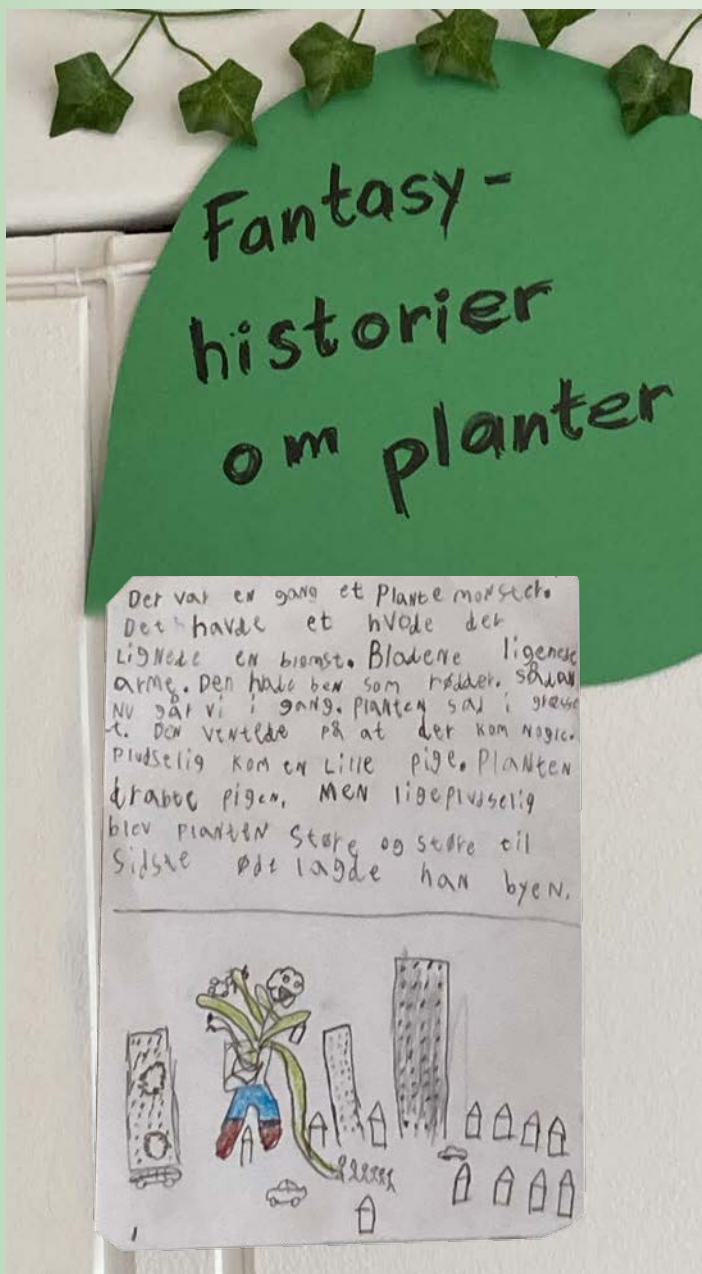 Fantasy-
historier
om planter
Der var en gang et Plante monster.
Det havde et hvode der
Lignede en blomst. Bladene ligenese
arme. Den hade ben som rødder. sådan
NU går vi i gang. Planten sad i græsse
t. Den ventede på at der kom nogle.
Pludselig kom en Lille pige. Planten
drabte pigen. Men ligepludselig
blev Planten Støre og støre til
Sidste ødt lagde han byen.